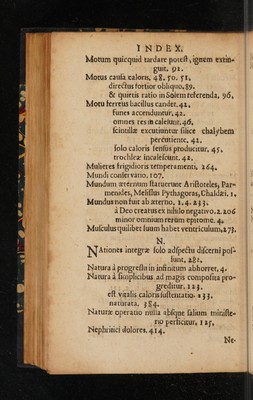 INDEX.
Motum quicquid tardare potest, ignem extin-
guit. 92.
Motus causa caloris, 48. 50. 51.
directus fortior obliquo, 89.
& quietis ratio in Solem referenda, 96.
Motu ferreus bacillus candet, 42.
funes accenduntur, 42.
omnes res incalescunt, 46.
scintillæ excutiuntur silice chalybem
percutiente. 42.
solo caloris sensus producitur, 45.
trochleæ incalescunt, 42.
Mulieres frigidioris temperamenti, 264.
Mundi conservatio, 107.
Mundum æternum statuerunt Aristoteles, Par-
menides, Melissus Pythagoras, Chaldæi, 1.
Mundus non fuit ab æterno, 3. 4. 233.
à Deo creatus ex nihilo negativo. 2. 206
minor omnium rerum epitome. 4.
Musculus quilibet suum habet ventriculum, 273.
N.
NAtiones integræ solo adspectu discerni pos-
sunt, 282.
Natura à progressu in infinitum abhorret, 4.
Natura à simplicibus ad magis composita pro-
greditur. 123.
est vitalis caloris sustentatio. 133.
naturata. 384.
Naturæ operatio nulla absque salium ministe-
rio perficitur, 125.
Nephritici dolores. 414.
Ne-